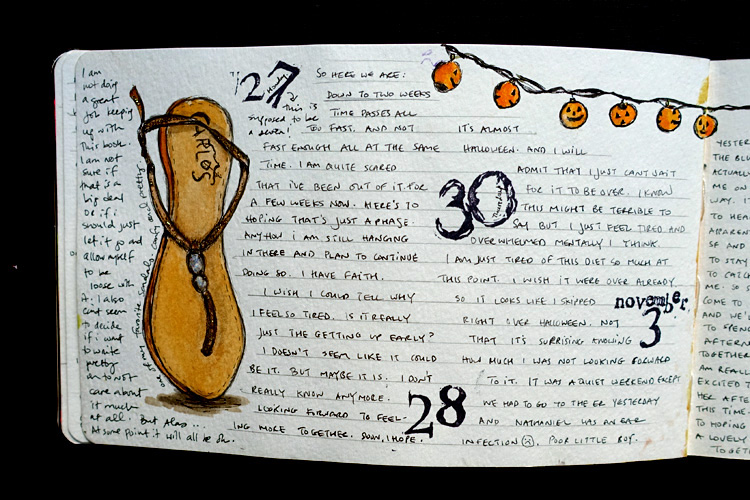 I am
not doing
a great
job keeping
up with
this book.
I am not
sure if
that is a
big deal
or if i
should just
let it go and
allow myself
to be
loose with
it. I also
can't seem
to decide
if i want
to write
pretty
or to not
care about
it much
at all. But alas...
At some point it will all be ok.
one of my favorite sandals. comfy and pretty
CARLOS
27
Monday
this is
supposed to be
a seven!
SO HERE WE ARE:
DOWN TO TWO WEEKS
TIME PASSES ALL
TOO FAST. AND NOT
FAST ENOUGH ALL AT THE SAME
TIME. I AM QUITE SCARED
THAT I'VE BEEN OUT OF IT FOR
A FEW WEEKS NOW. HERE'S TO
HOPING THAT'S JUST A PHASE.
ANYHOW I AM STILL HANGING
IN THERE AND PLAN TO CONTINUE
DOING SO. I HAVE FAITH.
I WISH I COULD TELL WHY
I FEEL SO TIRED. IS IT REALLY
JUST THE GETTING UP EARLY?
I DOESN'T SEEM LIKE IT COULD
BE IT. BUT MAYBE IT IS. I DON'T
REALLY KNOW ANYMORE.
28
LOOKING FORWARD TO FEEL-
ING MORE TOGETHER. SOON, I HOPE.
30
Thursday
IT'S ALMOST
HALLOWEEN. AND I WILL
ADMIT THAT I JUST CAN'T WAIT
FOR IT TO BE OVER. I KNOW
THIS MIGHT BE TERRIBLE TO
SAY BUT I JUST FEEL TIRED AND
OVERWHELMED MENTALLY I THINK.
I AM JUST TIRED OF THIS DIET SO MUCH AT
THIS POINT. I WISH IT WERE OVER ALREADY
november
3
SO IT LOOKS LIKE I SKIPPED
RIGHT OVER HALLOWEEN. NOT
THAT IT'S SURPRISING KNOWING
HOW MUCH I WAS NOT LOOKING FORWARD
TO IT. IT WAS A QUIET WEEKEND EXCEPT
WE HAD TO GO TO THE ER YESTERDAY
AND NATHANIEL HAS AN EAR
INFECTION. POOR LITTLE BOY.
YESTER
THE BLU
ACTUALLY
ME ON
WAY. I
TO HEA
APPARENT
SF AND
TO STAY
TO CATCH
ME. SO S
COME TO
AND WE'D
TO SPEND
AFTERN
TOGETHER
AM REALL
EXCITED T
HER AFTE
THIS TIME
TO HOPING
A LOVELY
TOGETH